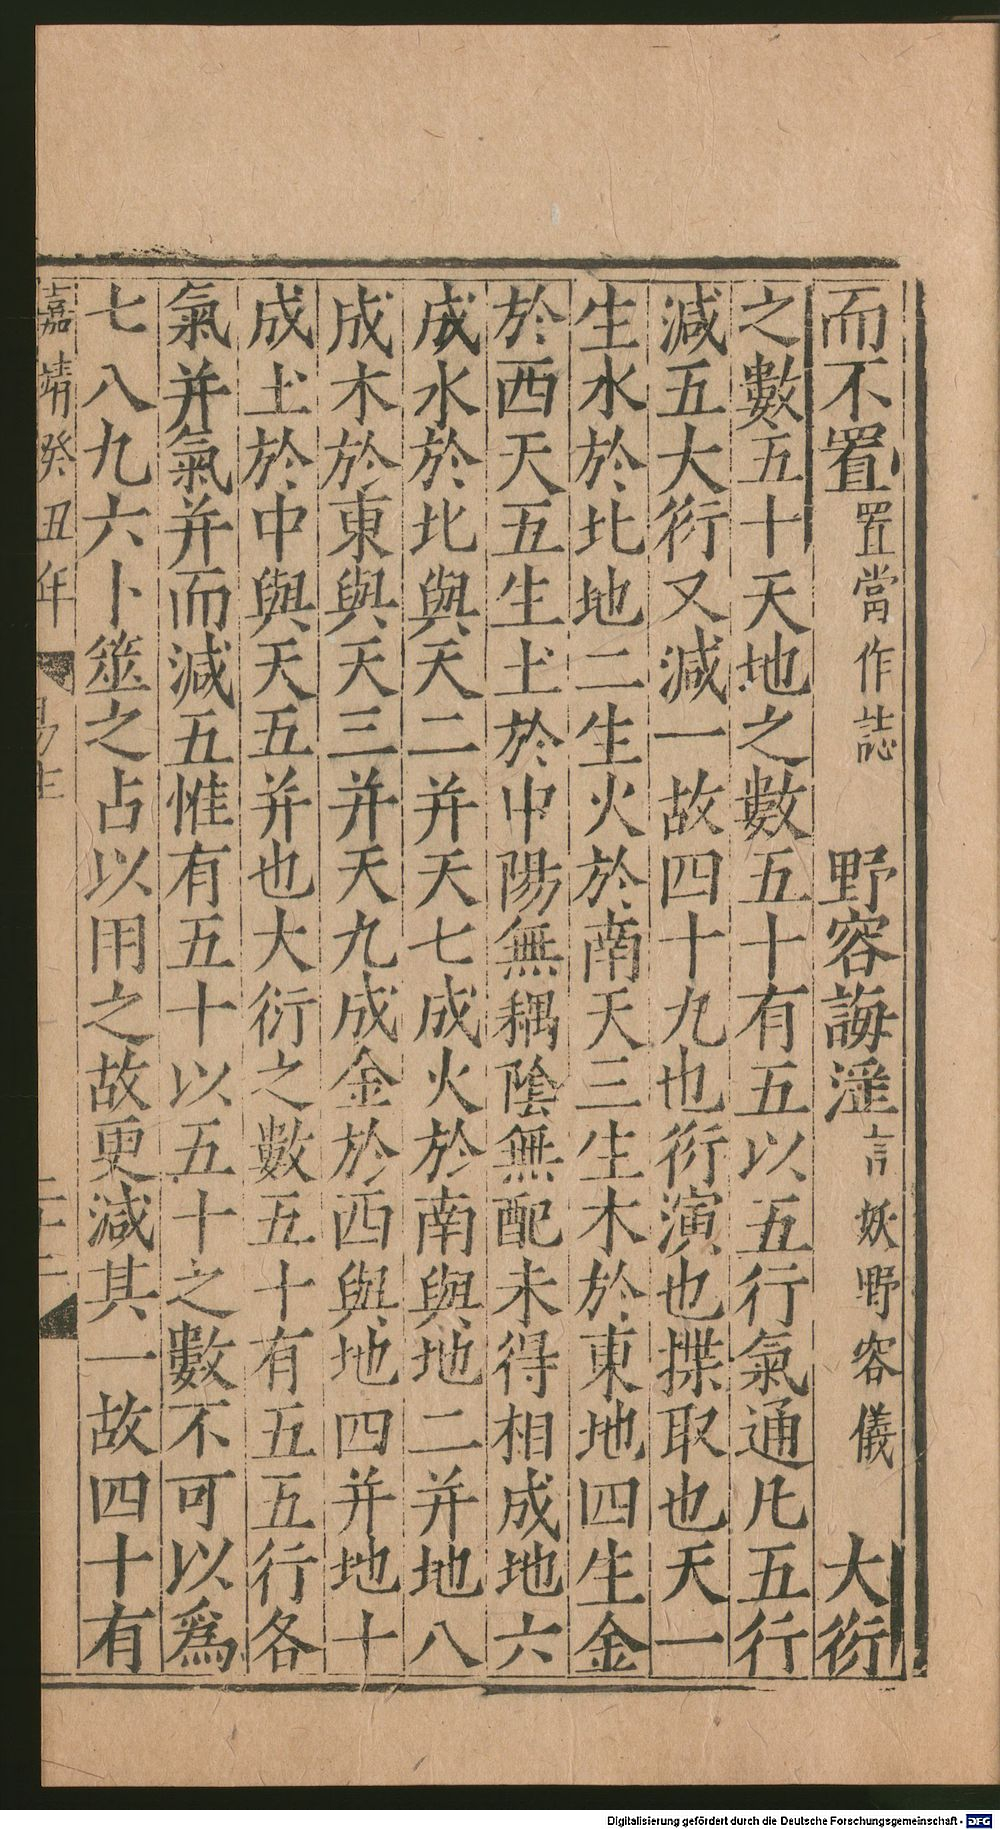 而不置置當作誌　野容誨淫言妖野容儀　大衍
之數五十天地之數五十有五以五行氣通凡五行
減五大衍又減一故四十九也衍演也揲取也天一
生水於北地二生火於南天三生木於東地四生金
於西天五生土於中陽無耦陰無配未得相成地六
成水於北與天二并天七成火於南與地二并地八
成木於東與天三并天九成金於西與地四并地十
成土於中與天五并也大衍之數五十有五五行各
氣并氣并而減五惟有五十以五十之數不可以爲
七八九六卜筮之占以用之故更減其一故四十有
嘉靖癸丑年
二十二
Digitalisierung gefördert durch die Deutsche Forschungsgemeinschaft - DFG